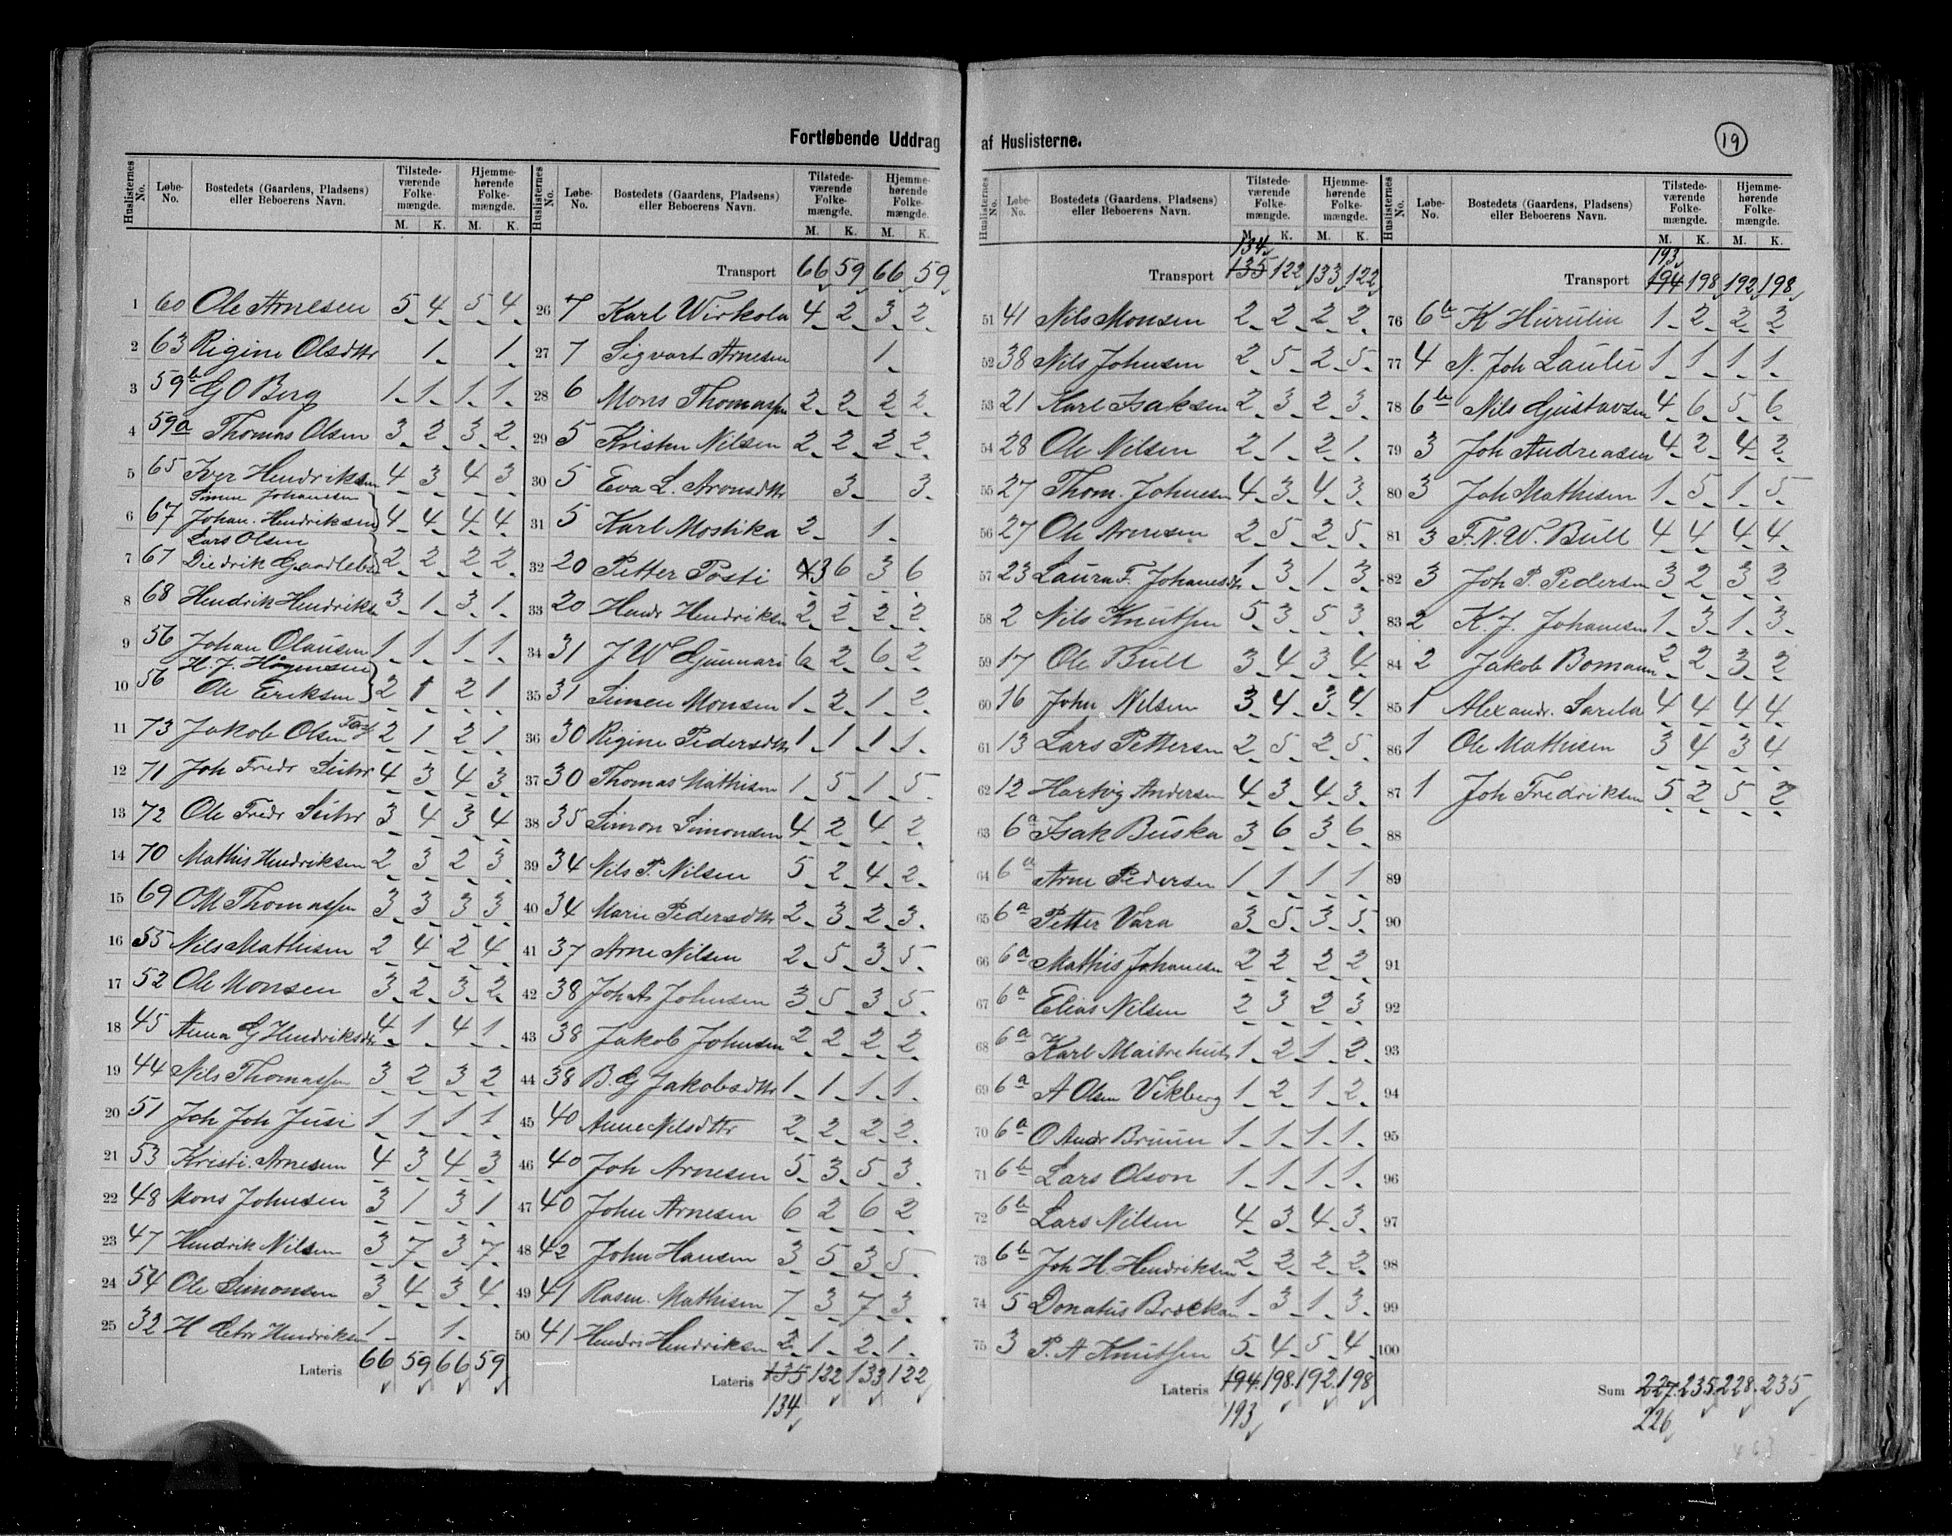 Fortløbende Uddrag af Huslisterne.
19
Huslisternes No. Løbe-No. Bostedets (Gaardens, Pladsens) eller Beboerens Navn. Tilstedeværende Folkemængde. M. K. Hjemmehørende Folkemængde. M. K.
1 60 Ole Arnesen 5 4 5 4
2 63 Regine Olsdtr 1 1
3 59b G O Berg 1 1 1 1
4 59a Thomas Olsen 3 2 3 2
5 65 Iver Hendriksen 4 3 4 3
Simen Johansen
6 67 Johan. Hendriksen 4 4 4 4
Lars Olsen
7 67 Diedrik 2 2 2 2
8 68 Hendrik Hendriks 3 1 3 1
9 56 Johan Olausen 1 1 1 1
H. J.
10 56 Ole Eriksen 2 1 2 1
11 73 Jakob Olsen 2 1 2 1
12 71 Joh Fredr 4 3 4 3
13 72 Ole Fredr 3 4 3 4
14 70 Mathis Hendriksen 2 3 2 3
15 69 O M Thomassen 3 3 3 3
16 55 Nils Mathisen 2 4 2 4
17 52 Ole Monsen 3 2 3 2
18 45 Anna G Hendriksdtr 4 1 4 1
19 44 Nils Thomassen 3 2 3 2
20 51 Joh Joh Jusi 1 1 1 1
21 53 Kristi. Arnesen 4 3 4 3
22 48 Mons Johnsen 3 1 3 1
23 47 Hendrik Nilsen 3 7 3 7
24 54 Ole Simonsen 3 4 3 4
25 32 H Hendriksen 1 1
Lateris 66 59 66 59
Huslisternes No. Løbe-No. Bostedets (Gaardens, Pladsens) eller Beboerens Navn. Tilstedeværende Folkemængde. M. K. Hjemmehørende Folkemængde. M. K.
Transport 66 59 66 59
26 7 Karl Wirkola 4 2 3 2
27 7 Sigvart Arnesen 1
28 6 Mons Thomassen 2 2 2 2
29 5 Kristen Nilsen 2 2 2 2
30 5 Eva L. Aronsdtr 3 3
31 5 Karl Mostika 2 1
32 20 Petter Posti 4 3 6 3 6
33 20 Hendr Hendriksen 2 2 2 2
34 31 J W Gunnari 6 2 6 2
35 31 Simen Monsen 1 2 1 2
36 30 Regine Pedersdtr 1 1 1 1
37 30 Thomas Mathisen 1 5 1 5
38 35 Simon Simonsen 4 2 4 2
39 34 Nils P. Nilsen 5 2 4 2
40 34 Marie Pedersdtr 2 3 2 3
41 37 Arne Nilsen 2 5 3 5
42 38 Joh A Johnsen 3 5 3 5
43 38 Jakob Johnsen 2 2 2 2
44 38 B. G Jakobsdtr 1 1 1 1
45 40 Anne Nilsdtr 2 2 2 2
46 40 Joh Arnesen 5 3 5 3
47 40 John Arnesen 6 2 6 2
48 42 John Hansen 3 5 3 5
49 41 Rasm. Mathisen 7 3 7 3
50 41 Hendr Hendriksen 2 1 2 1
Lateris 135 122 133 122
134
Huslisternes No. Løbe-No. Bostedets (Gaardens, Pladsens) eller Beboerens Navn. Tilstedeværende Folkemængde. M. K. Hjemmehørende Folkemængde. M. K.
134
Transport 135 122 133 122
51 41 Nils Monsen 2 2 2 2
52 38 Nils Johnsen 2 5 2 5
53 21 Karl Isaksen 2 3 2 3
54 28 Ole Nilsen 2 1 2 1
55 27 Thom. Johnesen 4 3 4 3
56 27 Ole Arnesen 2 5 2 5
57 23 Laura F. Johanesdtr 1 3 1 3
58 2 Nils Knutsen 5 3 5 3
59 17 Ole Bull 3 4 3 4
60 16 John Nilsen 3 4 3 4
61 13 Lars Pettersen 2 5 2 5
62 12 Hartvig Andersen 4 3 4 3
63 6a Isak Buska 3 6 3 6
64 6a Arne Pedersen 1 1 1 1
65 6a Petter Vara 3 5 3 5
66 6a Mathis Johanesen 2 2 2 2
67 6a Elias Nilsen 2 3 2 3
68 6a Karl 1 2 1 2
69 6a A Olsen Vikberg 1 2 1 2
70 6a O Andr Bruun 1 1 1 1
71 6b Lars Olson 1 1 1 1
72 6b Lars Nilsen 4 3 4 3
73 6b Joh H. Hendriksen 2 2 2 2
74 5 Donatus 1 3 1 3
75 3 P. A Knutsen 5 4 5 4
Lateris 194 198 192 198
193
Huslisternes No. Løbe-No. Bostedets (Gaardens, Pladsens) eller Beboerens Navn. Tilstedeværende Folkemængde. M. K. Hjemmehørende Folkemængde. M. K.
193
Transport 194 198 192 198
76 6b K Hurulin 1 2 2 2
77 4 N. Joh Lauli 1 1 1 1
78 6b Nils Gustavsen 4 6 5 6
79 3 Joh Andreasen 4 2 4 2
80 3 Joh Mathisen 1 5 1 5
81 3 F. N. W. Bull 4 4 4 4
82 3 Joh P. Pedersen 3 2 3 2
83 2 K. J. Johanesen 1 3 1 3
84 2 Jakob Bomann 2 2 3 2
85 1 Alexandr. Sarela 4 4 4 4
86 1 Ole Mathisen 3 4 3 4
87 1 Joh Fredriksen 5 2 5 2
88
89
90
91
92
93
94
95
96
97
98
99
100
Sum 227 235 228 235
226
463